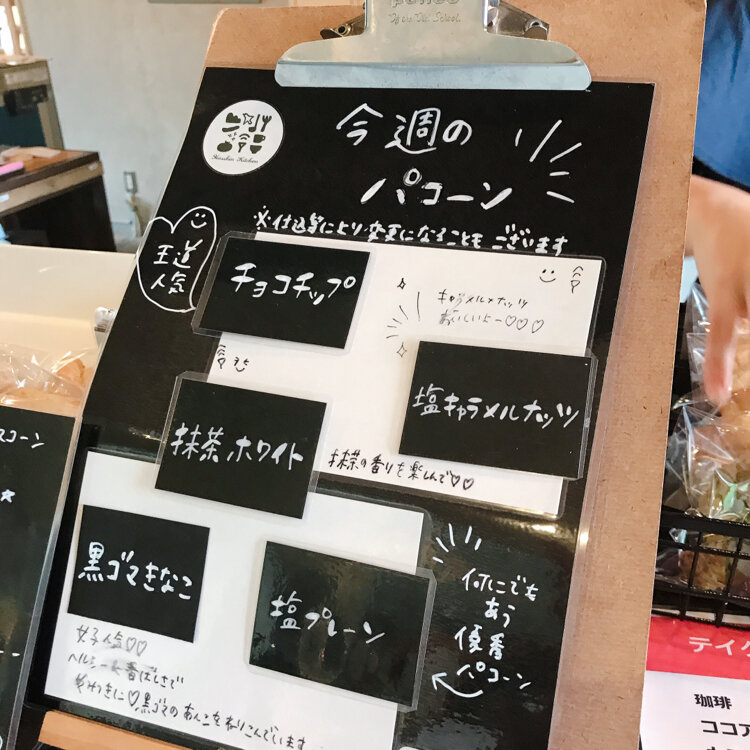 Of the Old School.
今週の
パコーン
※仕込等により変更になることもございます
王道
人気
チョコチップ
キャラメルナッツ
おいしいよー♡♡♡
塩キャラメルナッツ
抹茶ホワイト
抹茶の香りを楽しんで♡♡
黒ゴマきなこ
塩プレーン
何にでも
あう
優秀
パコーン
女子人気♡♡
ヘルシー&香ばしさで
黒ゴマのあんこをねりこんでいます
コーン
Kitchen
テイク
珈琲
ココア